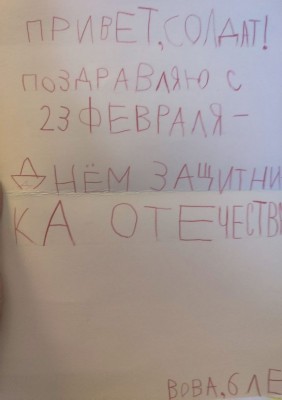 ПРИВЕТ, СОЛДАТ!
ПОЗДРАВЛЯЮ С
23 ФЕВРАЛЯ –
ДНЁМ ЗАЩИТНИ
КА ОТЕЧЕСТВ
ВОВА, 6 ЛЕ